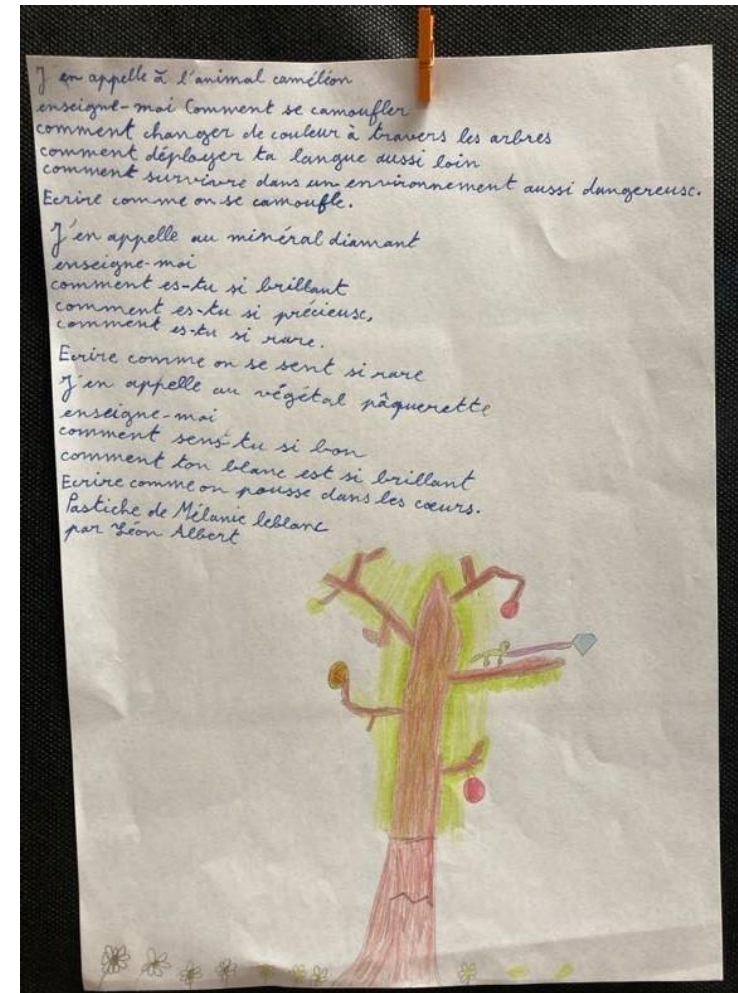 J'en appelle à l'animal caméléon
enseigne-moi Comment se camoufler
comment changer de couleur à travers les arbres
comment déployer ta langue aussi loin
comment survivre dans un environnement aussi dangereusc.
Ecrire comme on se camoufle.
J'en appelle au minéral diamant
enseigne-moi
comment es-tu si brillant
comment es-tu si précieusc,
comment es-tu si rare.
Ecrire comme on se sent si rare
J'en appelle au végétal pâquerette
enseigne-moi
comment sens-tu si bon
comment ton blanc est si brillant
Ecrire comme on pousse dans les cœurs.
Pastiche de Mélanie leblanc
par Léon Albert